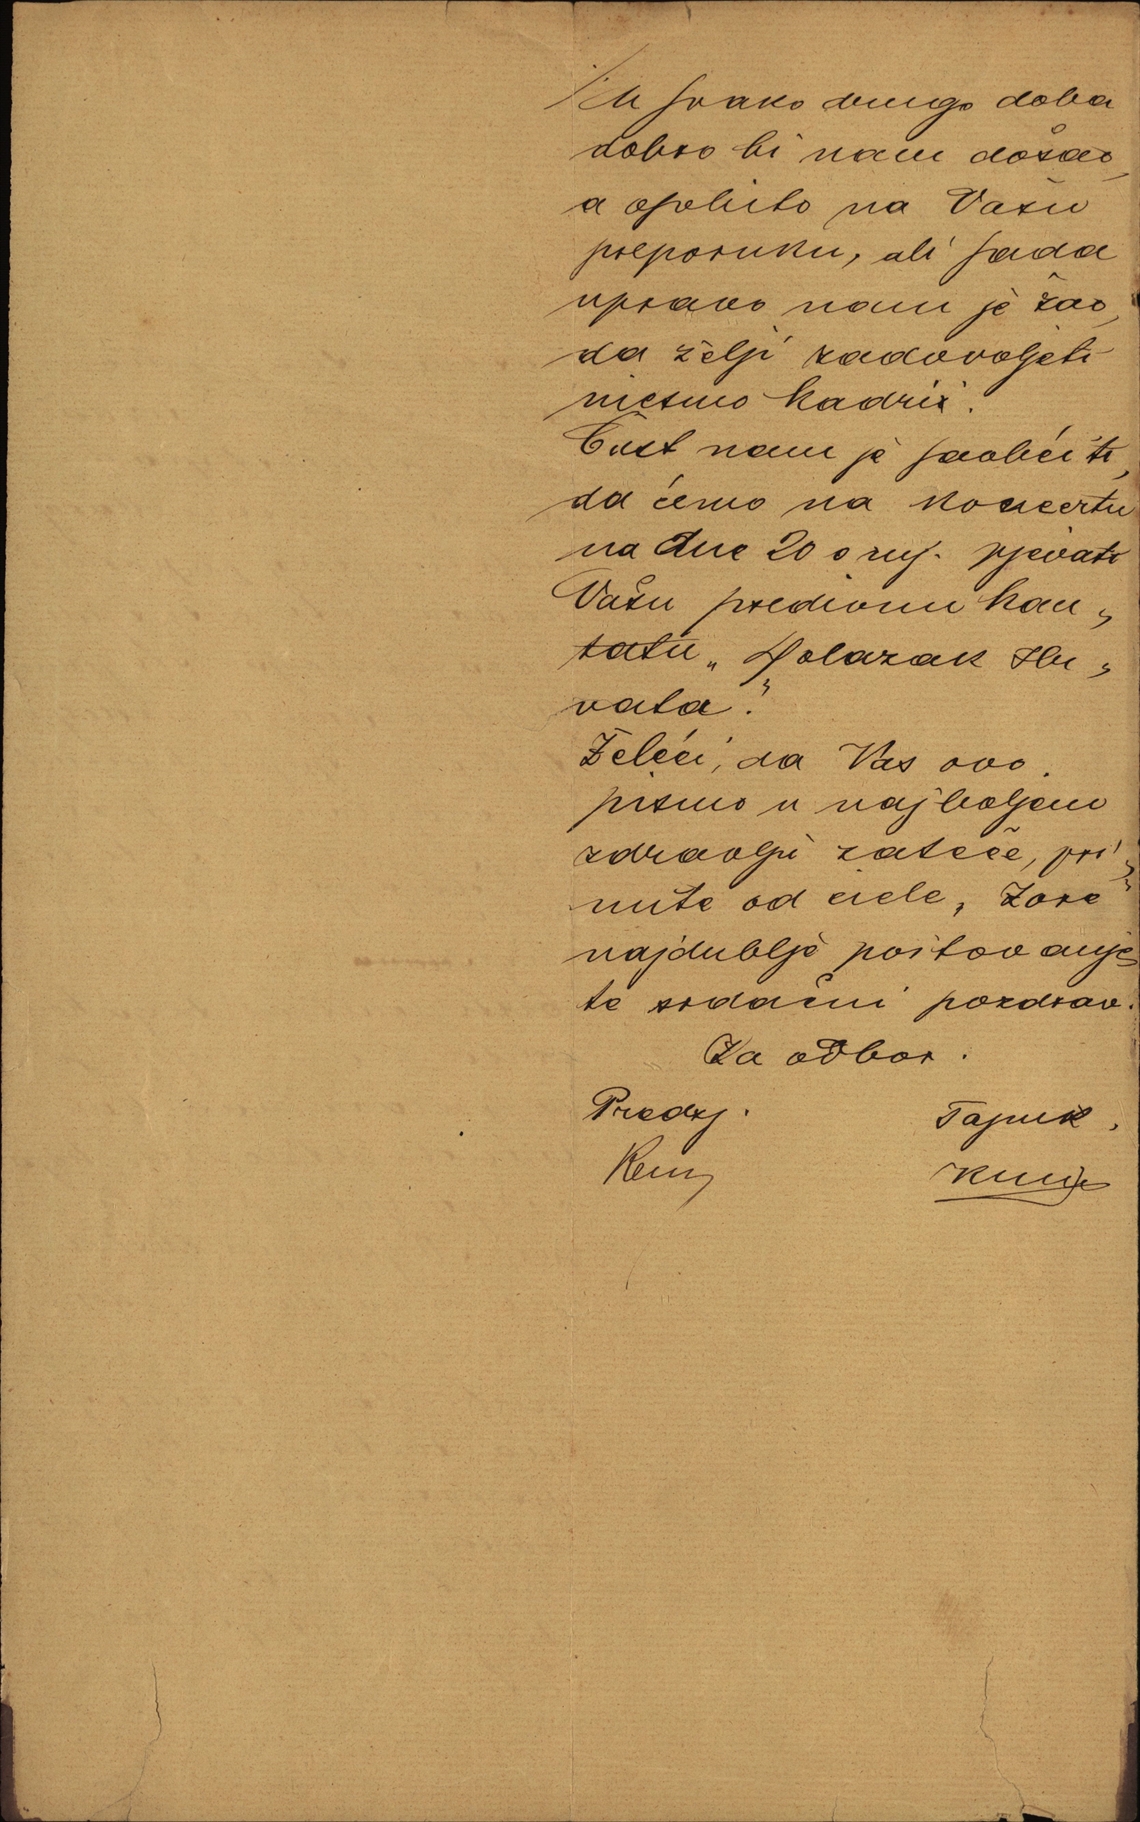 U svako drugo doba
dobro bi nam došao,
a osobito na Vašu
preporuku, ali sada
upravo nam je žao,
da želji zadovoljiti
niesmo kadri.
Čast nam je saobćiti,
da ćemo na koncertu
na dne 20 o. mj. pjevati
Vašu predivnu kan„
tatu „Dolazak Hr„
vata".
Želéći, da Vas ovo
pismo u najboljem
zdravlju zateče, pri„
mite od ciele „Zore"
najdublje poštovanje
te srdačni pozdrav.
Za odbor.
Predsj. Tajnik,